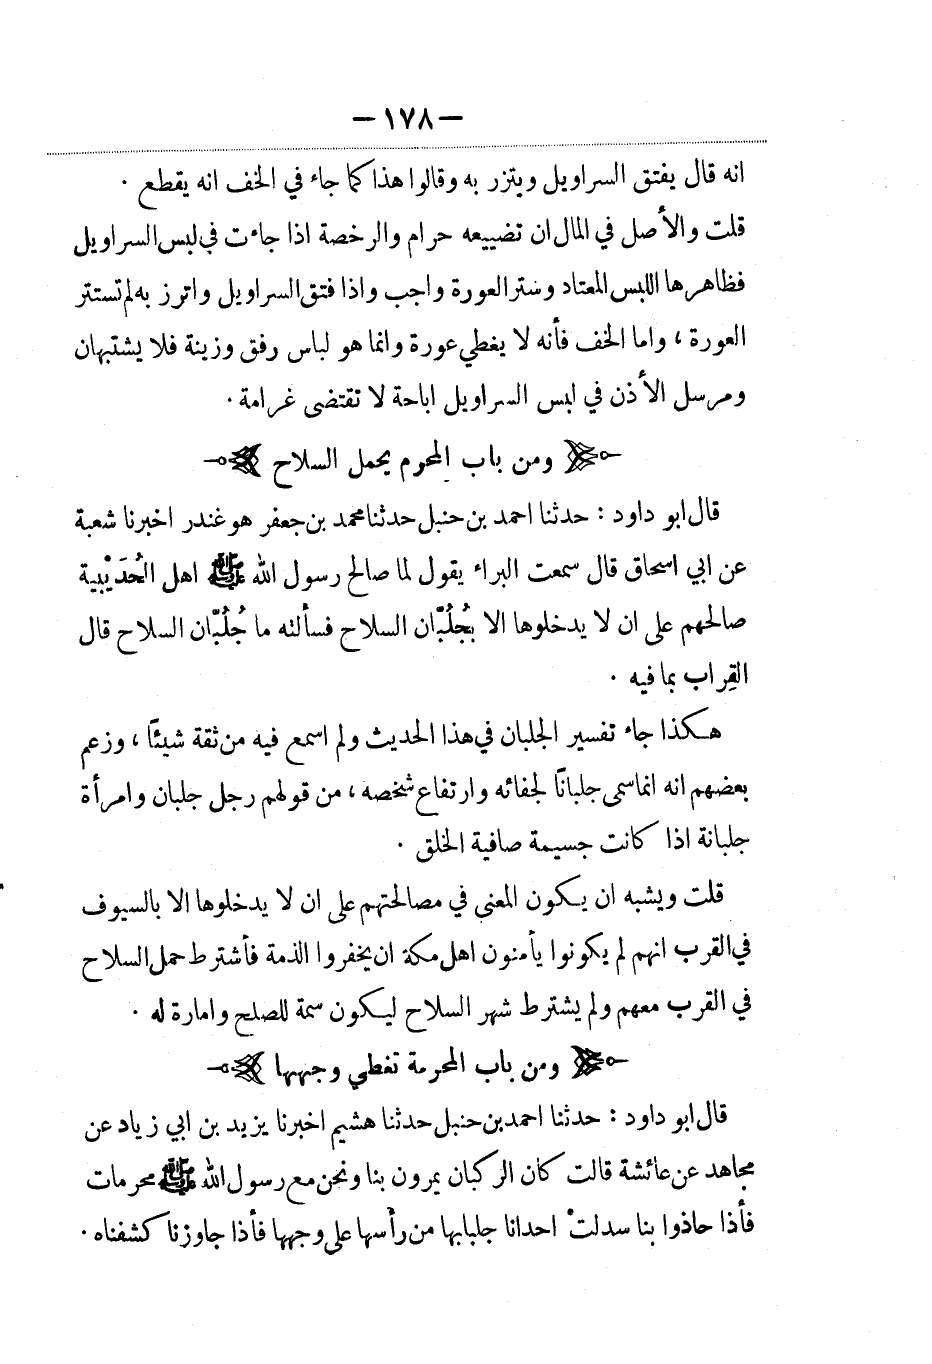 — ١٧٨ —
انه قال يفتق السراويل ويتزر به وقالوا هذا كما جاء في الخف انه يقطع .
قلت والأصل في المال ان تضييعه حرام والرخصة اذا جاءت في لبس السراويل
فظاهرها اللبس المعتاد وستر العورة واجب واذا فتق السراويل واتزر به لم تستتر
العورة ، واما الخف فأنه لا يغطي عورة وانما هو لباس رفق وزينة فلا يشتبهان
ومرسل الأذن في لبس السراويل اباحة لا تقتضى غرامة .
ومن باب المحرم يحمل السلاح
قال ابو داود : حدثنا احمد بن حنبل حدثنا محمد بن جعفر هو غندر اخبرنا شعبة
عن ابي اسحاق قال سمعت البراء يقول لما صالح رسول الله ﷺ اهل الحُدَيْبية
صالحهم على ان لا يدخلوها الا بجُلُبّان السلاح فسألته ما جُلُبّان السلاح قال
القِراب بما فيه .
هكذا جاء تفسير الجلبان في هذا الحديث ولم اسمع فيه من ثقة شيئًا ، وزعم
بعضهم انه انما سمى جلبانًا لجفائه وارتفاع شخصه ، من قولهم رجل جلبان وامرأة
جلبانة اذا كانت جسيمة صافية الخلق .
قلت ويشبه ان يكون المعنى في مصالحتهم على ان لا يدخلوها الا بالسيوف
في القرب انهم لم يكونوا يأمنون اهل مكة ان يخفروا الذمة فأشترط حمل السلاح
في القرب معهم ولم يشترط شهر السلاح ليكون سمة للصلح وامارة له .
ومن باب المحرمة تغطي وجهها
قال ابو داود : حدثنا احمد بن حنبل حدثنا هشيم اخبرنا يزيد بن ابي زياد عن
مجاهد عن عائشة قالت كان الركبان يمرون بنا ونحن مع رسول الله ﷺ محرمات
فأذا حاذوا بنا سدلتْ احدانا جلبابها من رأسها على وجهها فأذا جاوزنا كشفناه .